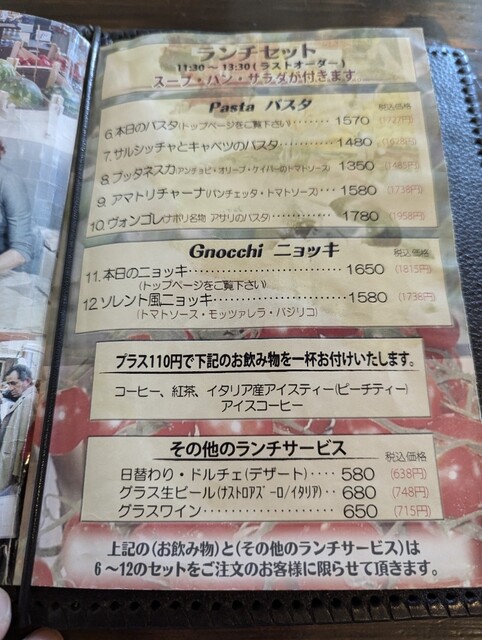 ランチセット
11:30～13:30(ラストオーダー)
スープ・パン・サラダが付きます
Pasta パスタ 税込価格
6.本日のパスタ(トップページをご覧下さい)・・・・・・・ 1570 (1727円)
7.サルシッチャとキャベツのパスタ・・・・・・・ 1480
8.プッタネスカ(アンチョビ・オリーブ・ケイパーのトマトソース) 1350 (1485円)
9.アマトリチャーナ(パンチェッタ・トマトソース)・・・ 1580 (1738円)
10.ヴォンゴレ(ナポリ名物 アサリのパスタ) ・・・・・・・ 1780 (1958円)
Gnocchi ニョッキ 税込価格
11.本日のニョッキ・・・・・・・・・・・・・・・・・・ 1650 (1815円)
(トップページをご覧下さい)
12.ソレント風ニョッキ・・・・・・・・・・・・・・・・ 1580 (1738円)
(トマトソース・モッツァレラ・バジリコ)
プラス110円で下記のお飲み物を一杯お付けいたします。
コーヒー、紅茶、イタリア産アイスティー(ピーチティー)
アイスコーヒー
その他のランチサービス 税込価格
日替わり・ドルチェ(デザート)・・・・ 580 (638円)
グラス生ビール(ナストロアズーロ/イタリア)・・ 680 (748円)
グラスワイン・・・・・・・・・・・・・・・・・・ 650 (715円)
上記の(お飲み物)と(その他のランチサービス)は
6～12のセットをご注文のお客様に限らせて頂きます。